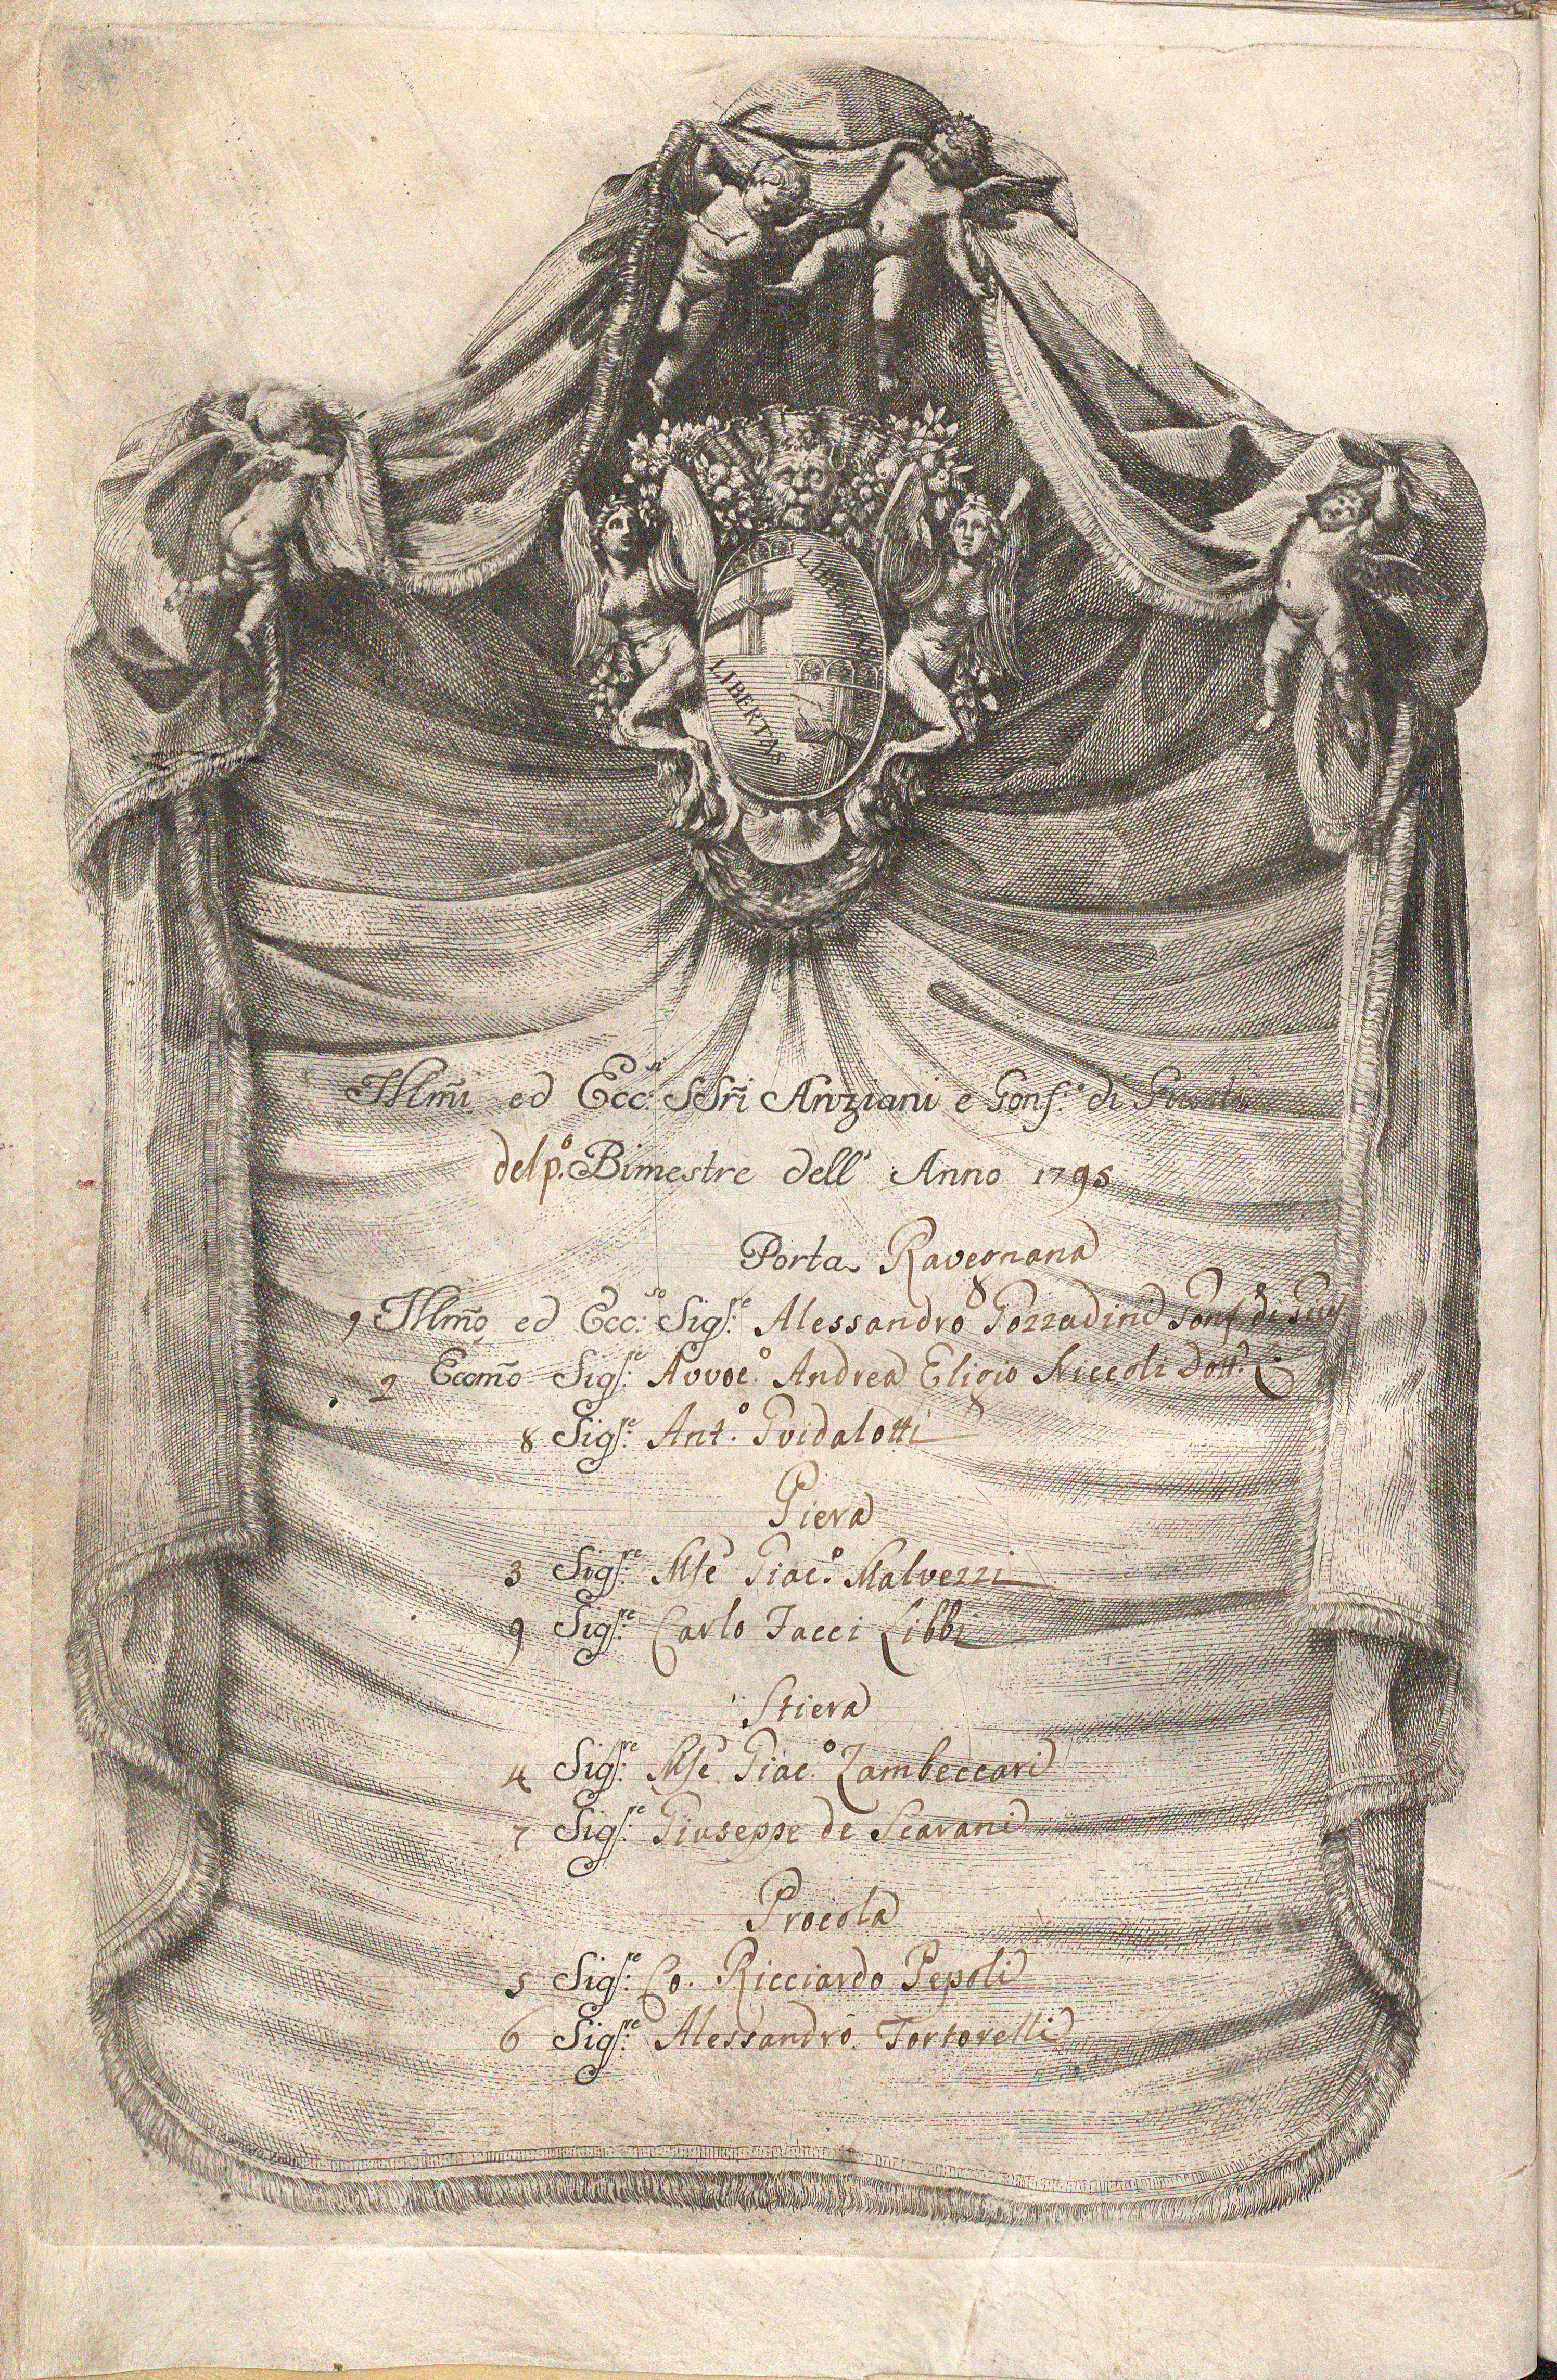 LIBERTAS
LIBERTAS
Illm̃i ed Ecc.si SSri Anziani e Gonf.e di Giustia
del p.o Bimestre dell' Anno 1795
Porta Ravegnana
1 Illm̃o ed Ecc.so Sig.re Alessandro Gozzadini Gonf. di Giust.
2 Eccm̃o Sig.re Avvoc.o Andrea Eligio Niccoli Dott.e C.
8 Sig.re Ant.o Guidalotti
Piera
3 Sig.re Mse Giac.o Malvezzi
9 Sig.re Carlo Facci Libbi
Stiera
4 Sig.re Mse Giac.o Zambeccari
7 Sig.re Giuseppe de Scarani
Procola
5 Sig.re Co. Ricciardo Pepoli
6 Sig.re Alessandro Tortorelli